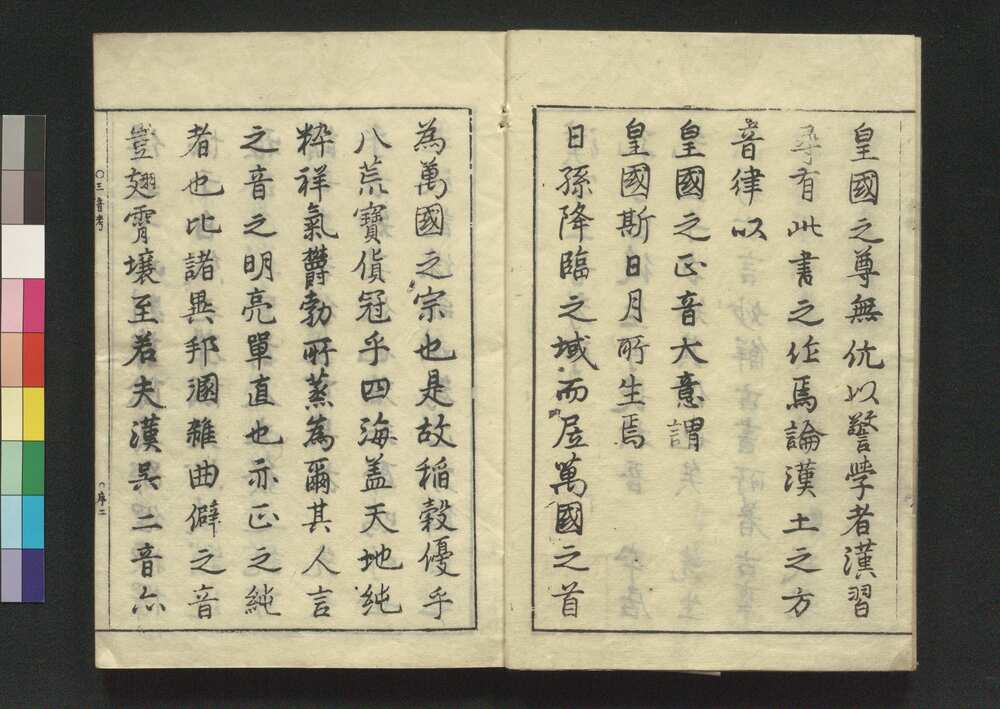 皇國之尊無伉以警学者漢習
尋有此書之作焉論漢土之方
音律以
皇國之正音大意謂
皇國斯日月所生焉
日孫降臨之域而居萬國之首
為萬國之宗也是故稲穀優乎
八荒寶貨冠乎四海盖天地純
粋祥氣欝勃所蒸為爾其人言
之音之明亮單直也亦正之純
者也比諸異邦溷雜曲僻之音
豈翅霄壌至若夫漢呉二音亦
〇三音考
序二